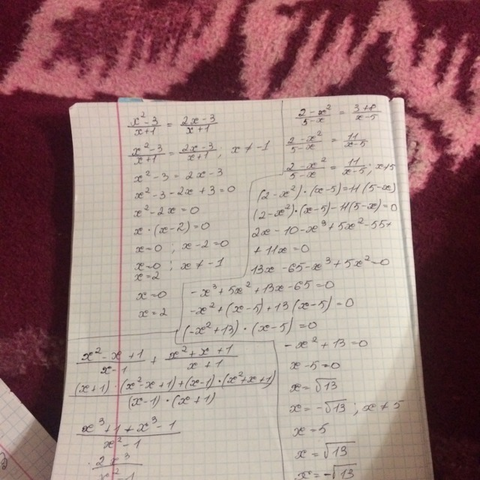 x²-3/x+1 = 2x-3/x+1
x²-3/x+1 = 2x-3/x+1, x≠-1
x²-3=2x-3
x²-3-2x+3=0
x²-2x=0
x·(x-2)=0
x=0, x-2=0
x=0; x≠-1
x=2
x=0
x=2
2-x²/5-x = 3+8/x-5
2-x²/5-x = 11/x-5
2-x²/5-x = 11/x-5; x≠5
(2-x²)·(x-5)=11(5-x)
(2-x²)·(x-5)-11(5-x)=0
2x-10-x³+5x²-55+
+11x=0
13x-65-x³+5x²=0
-x³+5x²+13x-65=0
-x²+(x-5)+13(x-5)=0
(-x²+13)·(x-5)=0
-x²+13=0
x-5=0
x=√13
x=-√13; x≠5
x=5
x=√13
x=-√13
x²-x+1/x-1 + x²+x+1/x+1
(x+1)·(x²-x+1)+(x-1)·(x²+x+1)/(x-1)·(x+1)
x³+1+x³-1/x²-1
2x³/x²-1